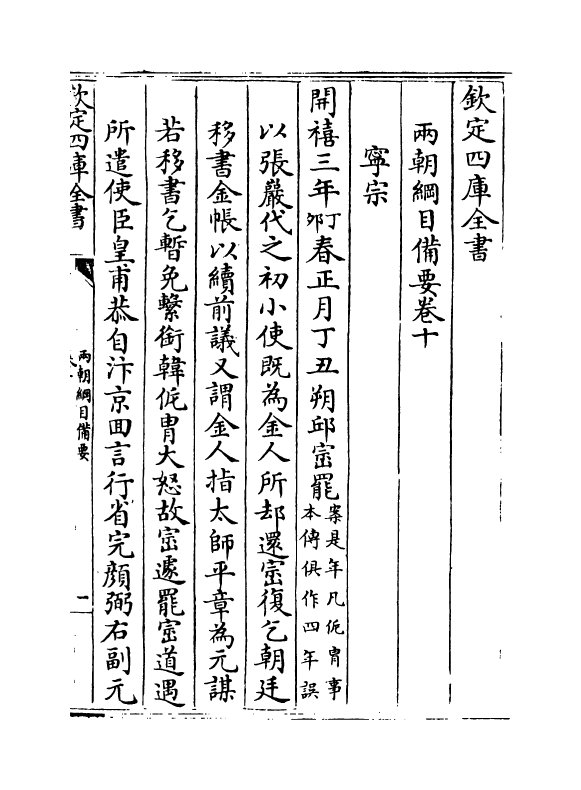 欽定四庫全書
兩朝綱目備要卷十
寧宗
開禧三年丁夘春正月丁丑朔邱崈罷案是年凡侂胄事本傳俱作四年誤
以張嚴代之初小使既為金人所却還崈復乞朝廷
移書金帳以續前議又謂金人指太師平章為元謀
若移書乞暫免繫銜韓侂胄大怒故崈遽罷崈道遇
所遣使臣皇甫恭自汴京回言行省完顏弼右副元
欽定四庫全書
兩朝綱目備要
二